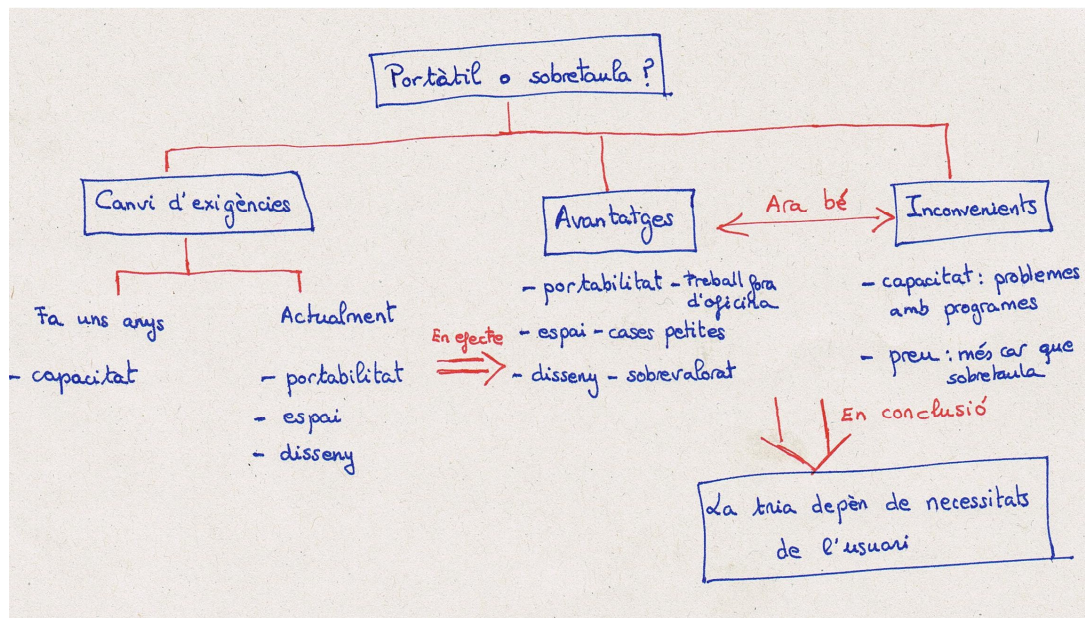 Portàtil o sobretaula ?
Canvi d'exigències
Fa uns anys
- capacitat
Actualment
- portabilitat
- espai
- disseny
En efecte
Avantatges
- portabilitat - Treball fora
d'oficina
- espai - cases petites
- disseny - sobrevalorat
Ara bé
Inconvenients
- capacitat : problemes
amb programes
- preu : més car que
sobretaula
En conclusió
La tria depèn de necessitats
de l'usuari